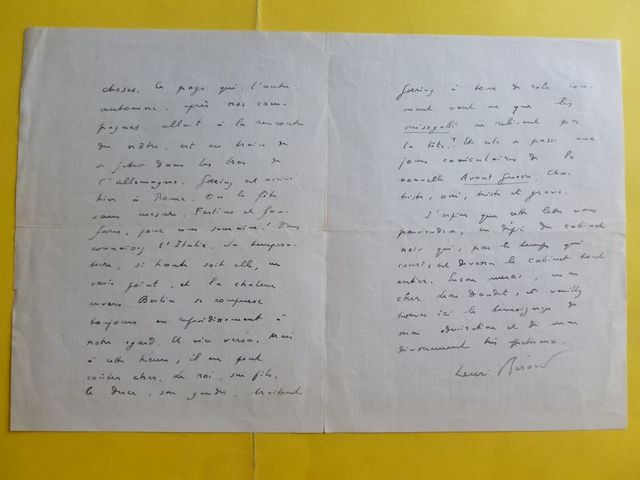 choses. Ce pays qui, l'autre
automne, après nos cam-
pagnes, allait à la rencontre
du nôtre, est en train de
se jeter dans les bras de
l'Allemagne. Goering est arrivé
hier à Rome. On le fête
sans mesure. Festins et fan-
fares, pour une semaine! Vous
connaissez l'Italie. Sa tempéra-
ture, si haute soit elle, ne
varie point, et la chaleur
envers Berlin se compense
toujours en refroidissement à
notre égard. Et vice versa. Mais
à cette heure, il en peut
coûter cher. Le roi, son fils,
le duce, son gendre, traitent
Goering à tour de rôle. Com-
ment veut-on que les
misogalli ne relèvent pas
la tête? Et cela se passe aux
jours caniculaires de la
nouvelle Avant Guerre. C'est
triste, oui, triste et grave.
J'espère que cette lettre vous
parviendra, en dépit du cabinet
noir qui, par le temps qui
court, est devenu le cabinet tout
entier. Encore merci, mon
cher Léon Daudet, et veuillez
trouver ici le témoignage de
mon admiration et de mon
dévouement très affectueux.
Henri Béraud